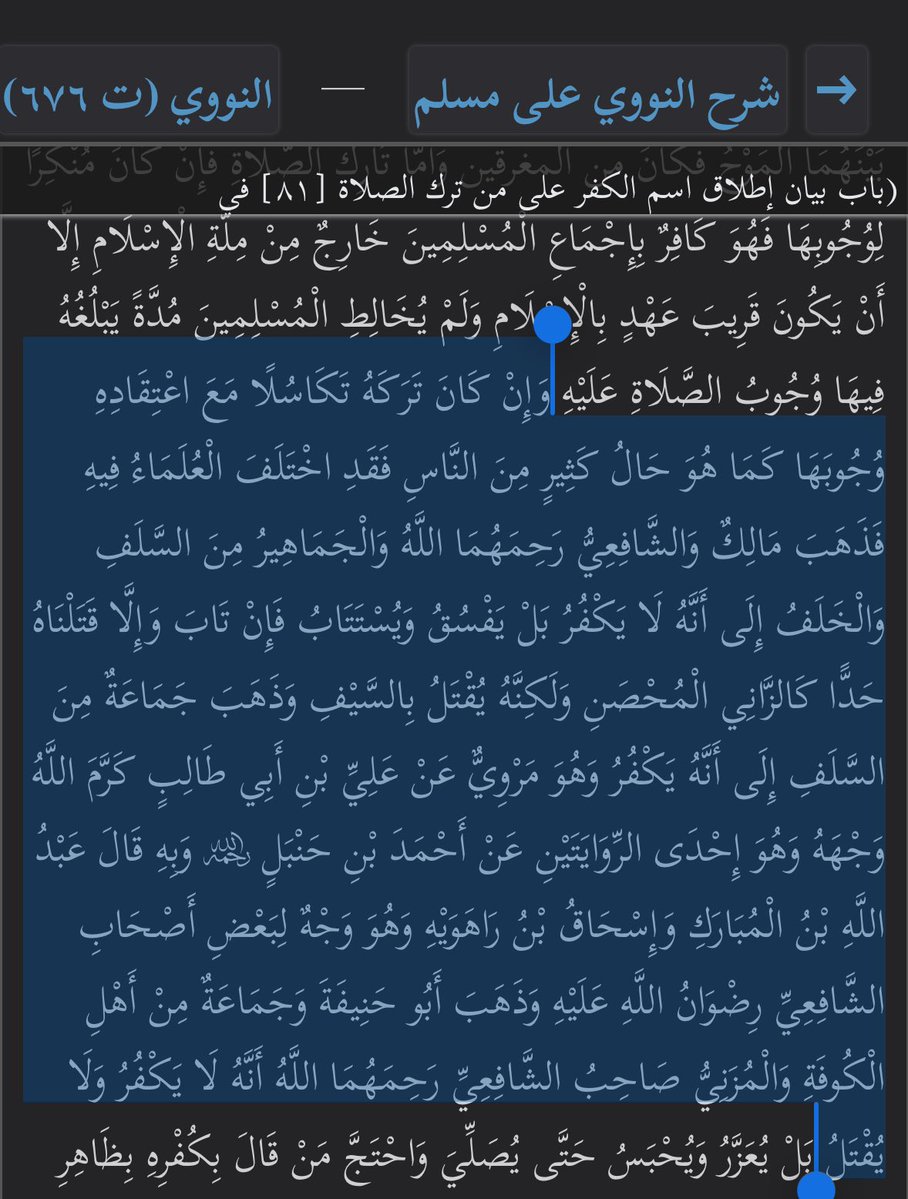 شرح النووي على مسلم — النووي (ت ٦٧٦)
بَيْنَهُمَا الْمَوْجُ فَكَانَ مِنَ المغرقين وَأَمَّا تَارِكُ الصَّلَاةِ فَإِنْ كَانَ مُنْكِرًا
(باب بيان إطلاق اسم الكفر على من ترك الصلاة [٨١] في
لِوُجُوبِهَا فَهُوَ كَافِرٌ بِإِجْمَاعِ الْمُسْلِمِينَ خَارِجٌ مِنْ مِلَّةِ الْإِسْلَامِ إِلَّا
أَنْ يَكُونَ قَرِيبَ عَهْدٍ بِالْإِسْلَامِ وَلَمْ يُخَالِطِ الْمُسْلِمِينَ مُدَّةً يَبْلُغُهُ
فِيهَا وُجُوبُ الصَّلَاةِ عَلَيْهِ وَإِنْ كَانَ تَرَكَهُ تَكَاسُلًا مَعَ اعْتِقَادِهِ
وُجُوبَهَا كَمَا هُوَ حَالُ كَثِيرٍ مِنَ النَّاسِ فَقَدِ اخْتَلَفَ الْعُلَمَاءُ فِيهِ
فَذَهَبَ مَالِكٌ وَالشَّافِعِيُّ رَحِمَهُمَا اللَّهُ وَالْجَمَاهِيرُ مِنَ السَّلَفِ
وَالْخَلَفُ إِلَى أَنَّهُ لَا يَكْفُرُ بَلْ يَفْسُقُ وَيُسْتَتَابُ فَإِنْ تَابَ وَإِلَّا قَتَلْنَاهُ
حَدًّا كَالزَّانِي الْمُحْصَنِ وَلَكِنَّهُ يُقْتَلُ بِالسَّيْفِ وَذَهَبَ جَمَاعَةٌ مِنَ
السَّلَفِ إِلَى أَنَّهُ يَكْفُرُ وَهُوَ مَرْوِيٌّ عَنْ عَلِيِّ بْنِ أَبِي طَالِبٍ كَرَّمَ اللَّهُ
وَجْهَهُ وَهُوَ إِحْدَى الرِّوَايَتَيْنِ عَنْ أَحْمَدَ بْنِ حَنْبَلٍ رحمه الله وَبِهِ قَالَ عَبْدُ
اللَّهِ بْنُ الْمُبَارَكِ وَإِسْحَاقُ بْنُ رَاهَوَيْهِ وَهُوَ وَجْهٌ لِبَعْضِ أَصْحَابِ
الشَّافِعِيِّ رِضْوَانُ اللَّهِ عَلَيْهِ وَذَهَبَ أَبُو حَنِيفَةَ وَجَمَاعَةٌ مِنْ أَهْلِ
الْكُوفَةِ وَالْمُزَنِيُّ صَاحِبُ الشَّافِعِيِّ رَحِمَهُمَا اللَّهُ أَنَّهُ لَا يَكْفُرُ وَلَا
يُقْتَلُ بَلْ يُعَزَّرُ وَيُحْبَسُ حَتَّى يُصَلِّيَ وَاحْتَجَّ مَنْ قَالَ بِكُفْرِهِ بِظَاهِرِ